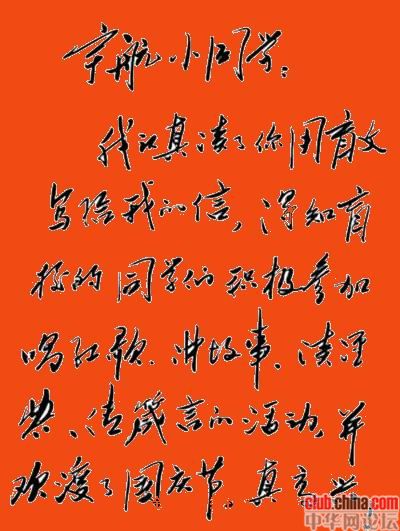 宇航小同学:
我认真读了你用盲文
写给我的信,得知盲
校的同学们积极参加
唱红歌、讲故事、读经
典、传箴言的活动,并
欢渡了国庆节。真高兴
club.china.com
中华网论坛